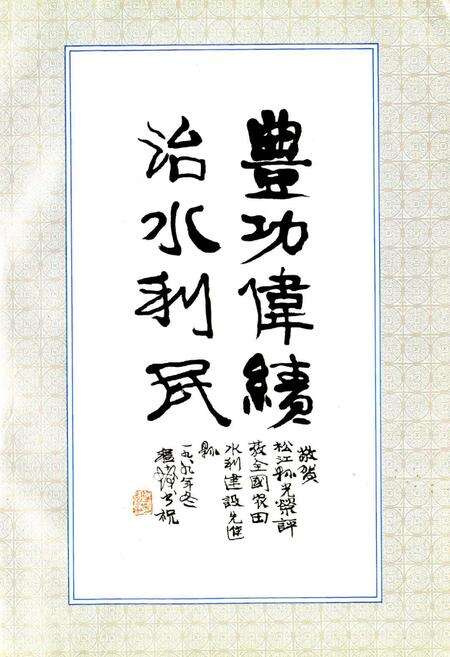 豐功偉績
治水利民
敬贺
松江县光榮評
为全國农田
水利建設先進
县
一九八九年冬
书祝